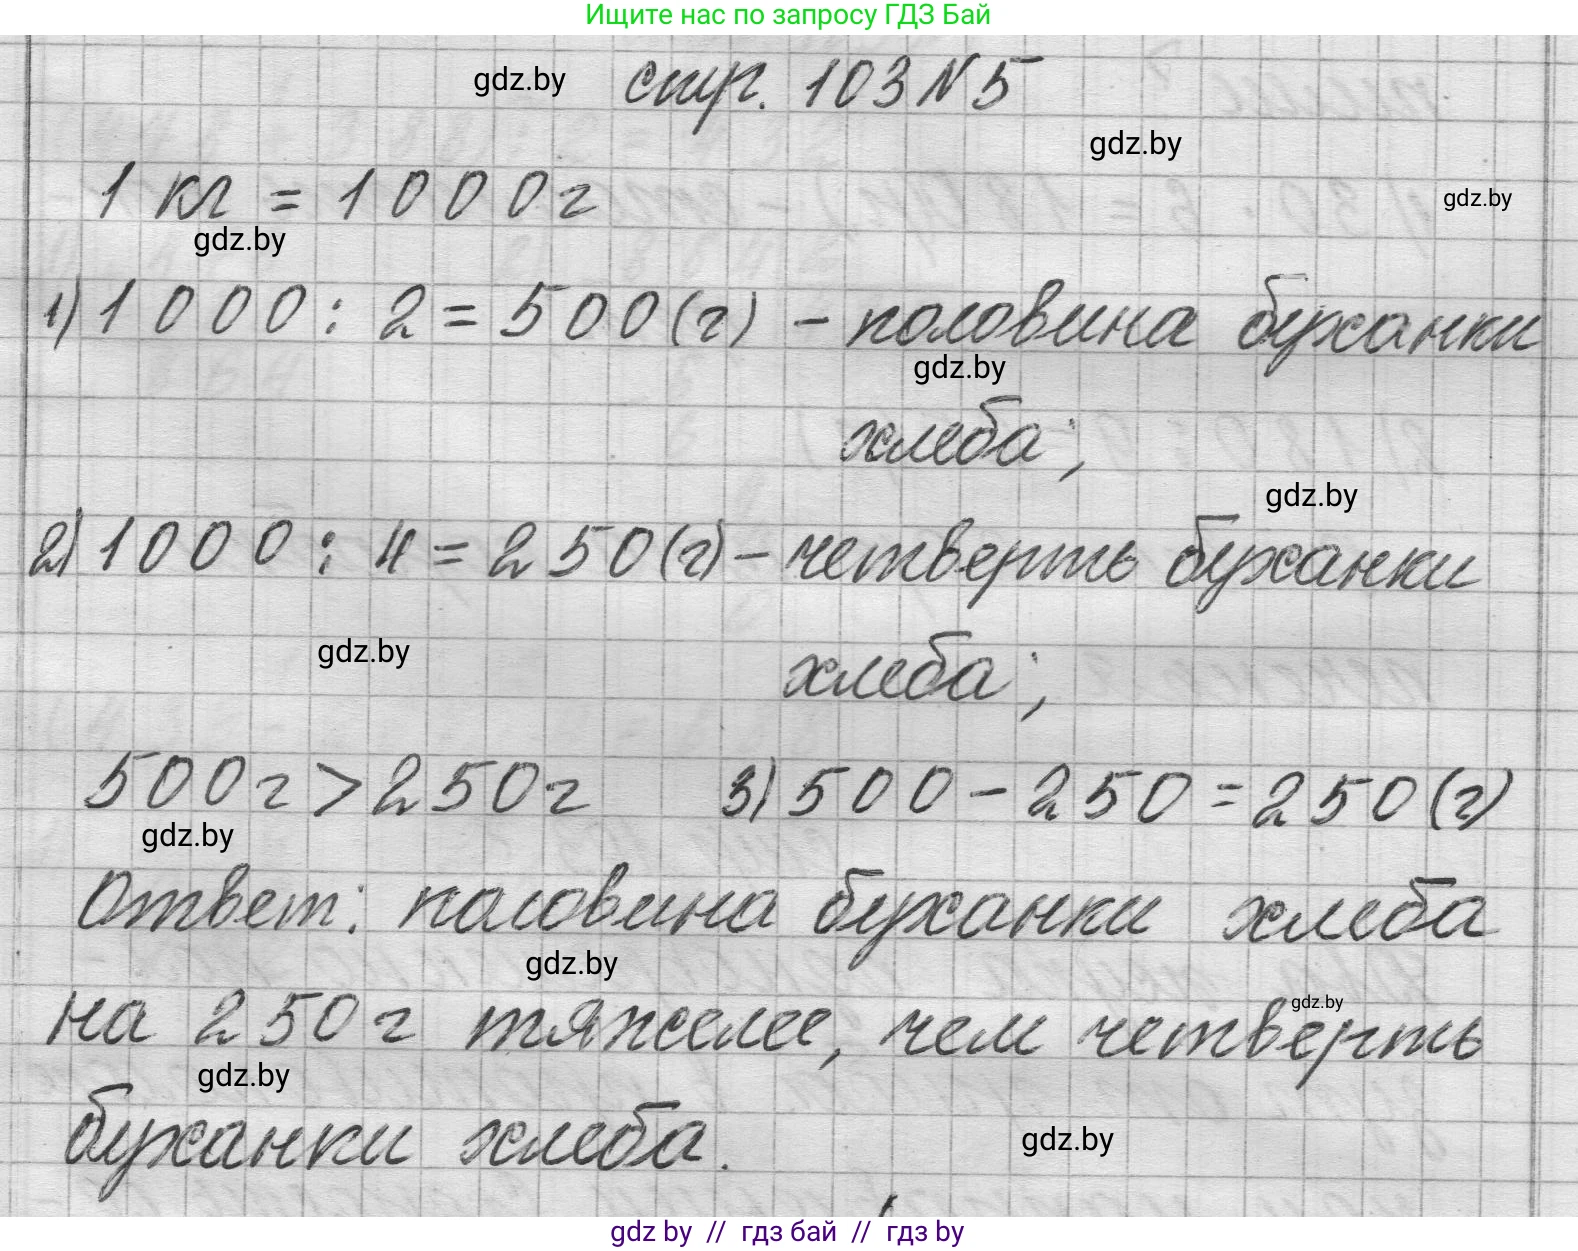 Ищите нас по запросу ГДЗ Бай
gdz.by стр. 103 N 5
gdz.by
1 кг = 1000г
gdz.by
gdz.by
1) 1000 : 2 = 500(г) - половина буханки
gdz.by
хлеба;
gdz.by
2) 1000 : 4 = 250(г) - четверть буханки
gdz.by
хлеба;
500г > 250г 3) 500 - 250 = 250(г)
gdz.by
Ответ: половина буханки хлеба
gdz.by
gdz.by
на 250г тяжелее, чем четверть
gdz.by
буханки хлеба.
gdz.by
gdz by // гдз бай // гдз by